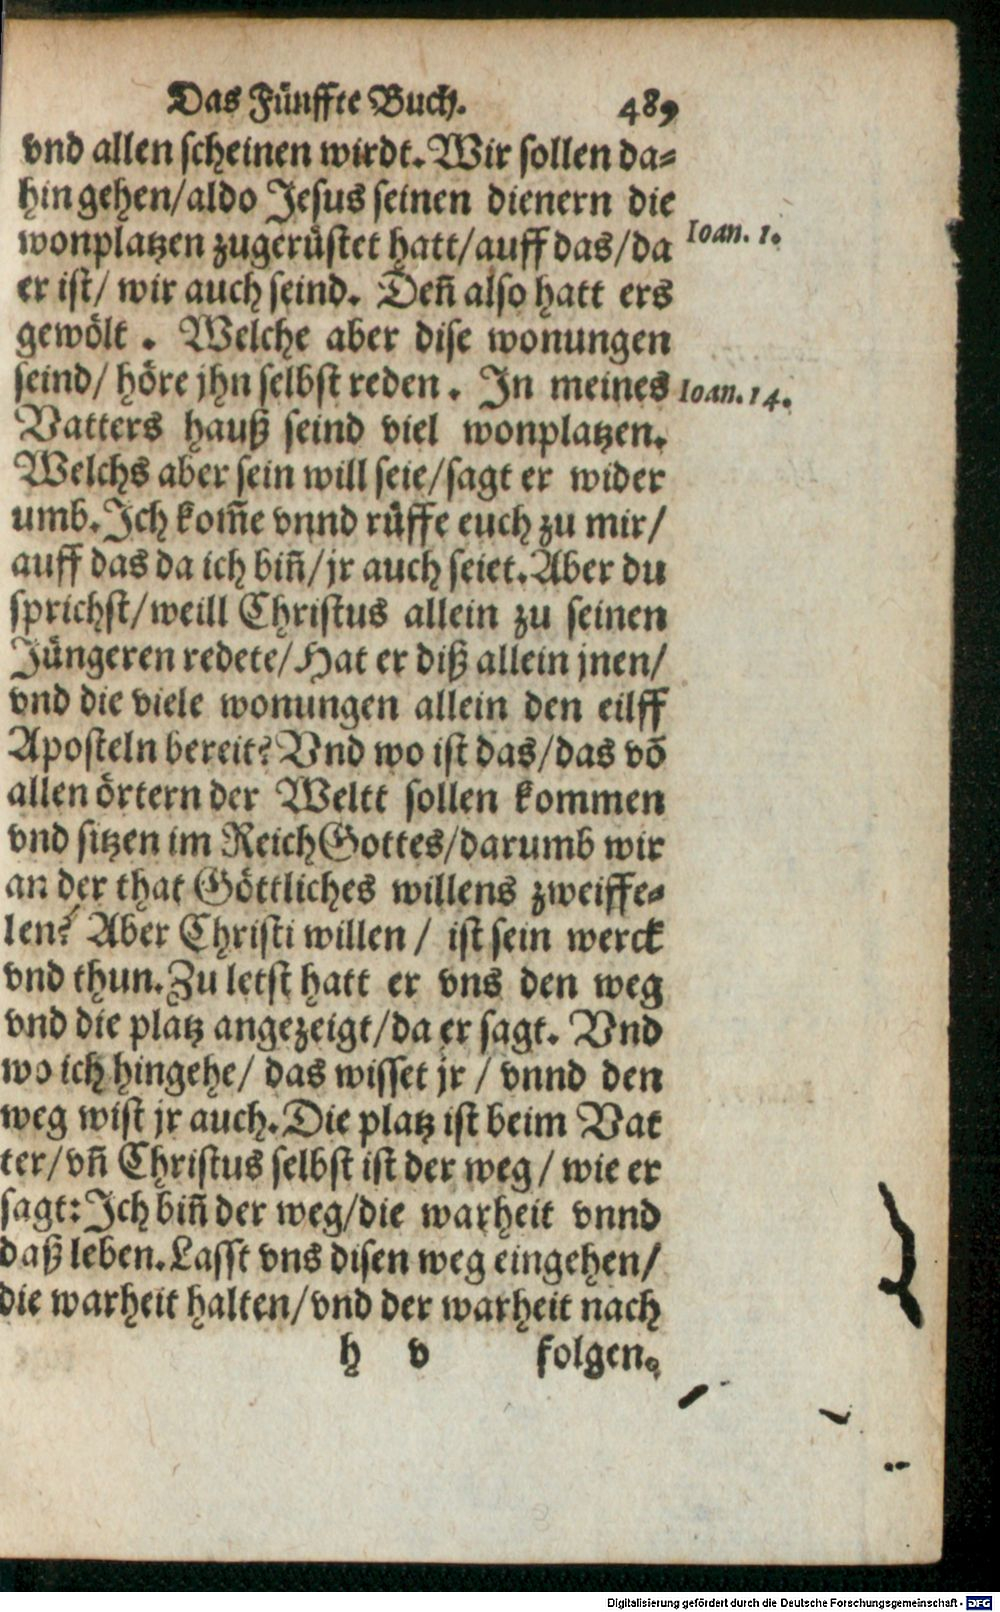 Das Fünffte Buch. 489
vnd allen scheinen wirdt. Wir sollen da=
hin gehen/aldo Jesus seinen dienern die
wonplatzen zugerüstet hatt/auff das/da
Ioan. 1.
er ist/ wir auch seind. Deñ also hatt ers
gewölt . Welche aber dise wonungen
seind/ höre jhn selbst reden . In meines
Ioan. 14.
Vatters hauß seind viel wonplatzen.
Welchs aber sein will seie/sagt er wider
umb. Ich kom̃e vnnd rüffe euch zu mir/
auff das da ich biñ/jr auch seiet. Aber du
sprichst/weill Christus allein zu seinen
Jüngeren redete/Hat er diß allein jnen/
vnd die viele wonungen allein den eilff
Aposteln bereit? Vnd wo ist das/das võ
allen örtern der Weltt sollen kommen
vnd sitzen im Reich Gottes/darumb wir
an der that Göttliches willens zweiffe=
len? Aber Christi willen / ist sein werck
vnd thun. Zu letst hatt er vns den weg
vnd die platz angezeigt/da er sagt. Vnd
wo ich hingehe/ das wisset jr / vnnd den
weg wist jr auch. Die platz ist beim Vat
ter/vñ Christus selbst ist der weg / wie er
sagt: Ich biñ der weg/die warheit vnnd
daß leben. Lasst vns disen weg eingehen/
die warheit halten/vnd der warheit nach
h v folgen.
Digitalisierung gefördert durch die Deutsche Forschungsgemeinschaft - DFG